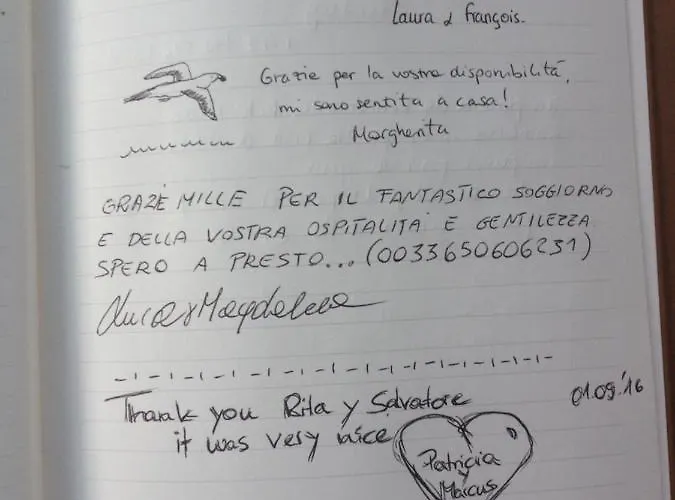 Laura & François.
Grazie per la vostra disponibilità,
mi sono sentita a casa!
Margherita
GRAZIE MILLE PER IL FANTASTICO SOGGIORNO
E DELLA VOSTRA OSPITALITA' E GENTILEZZA
SPERO A PRESTO... (0033650606231)
Luca & Magdalena
01.09.'16
Thank you Rita y Salvatore
it was very nice
Patricia
y
Marcus